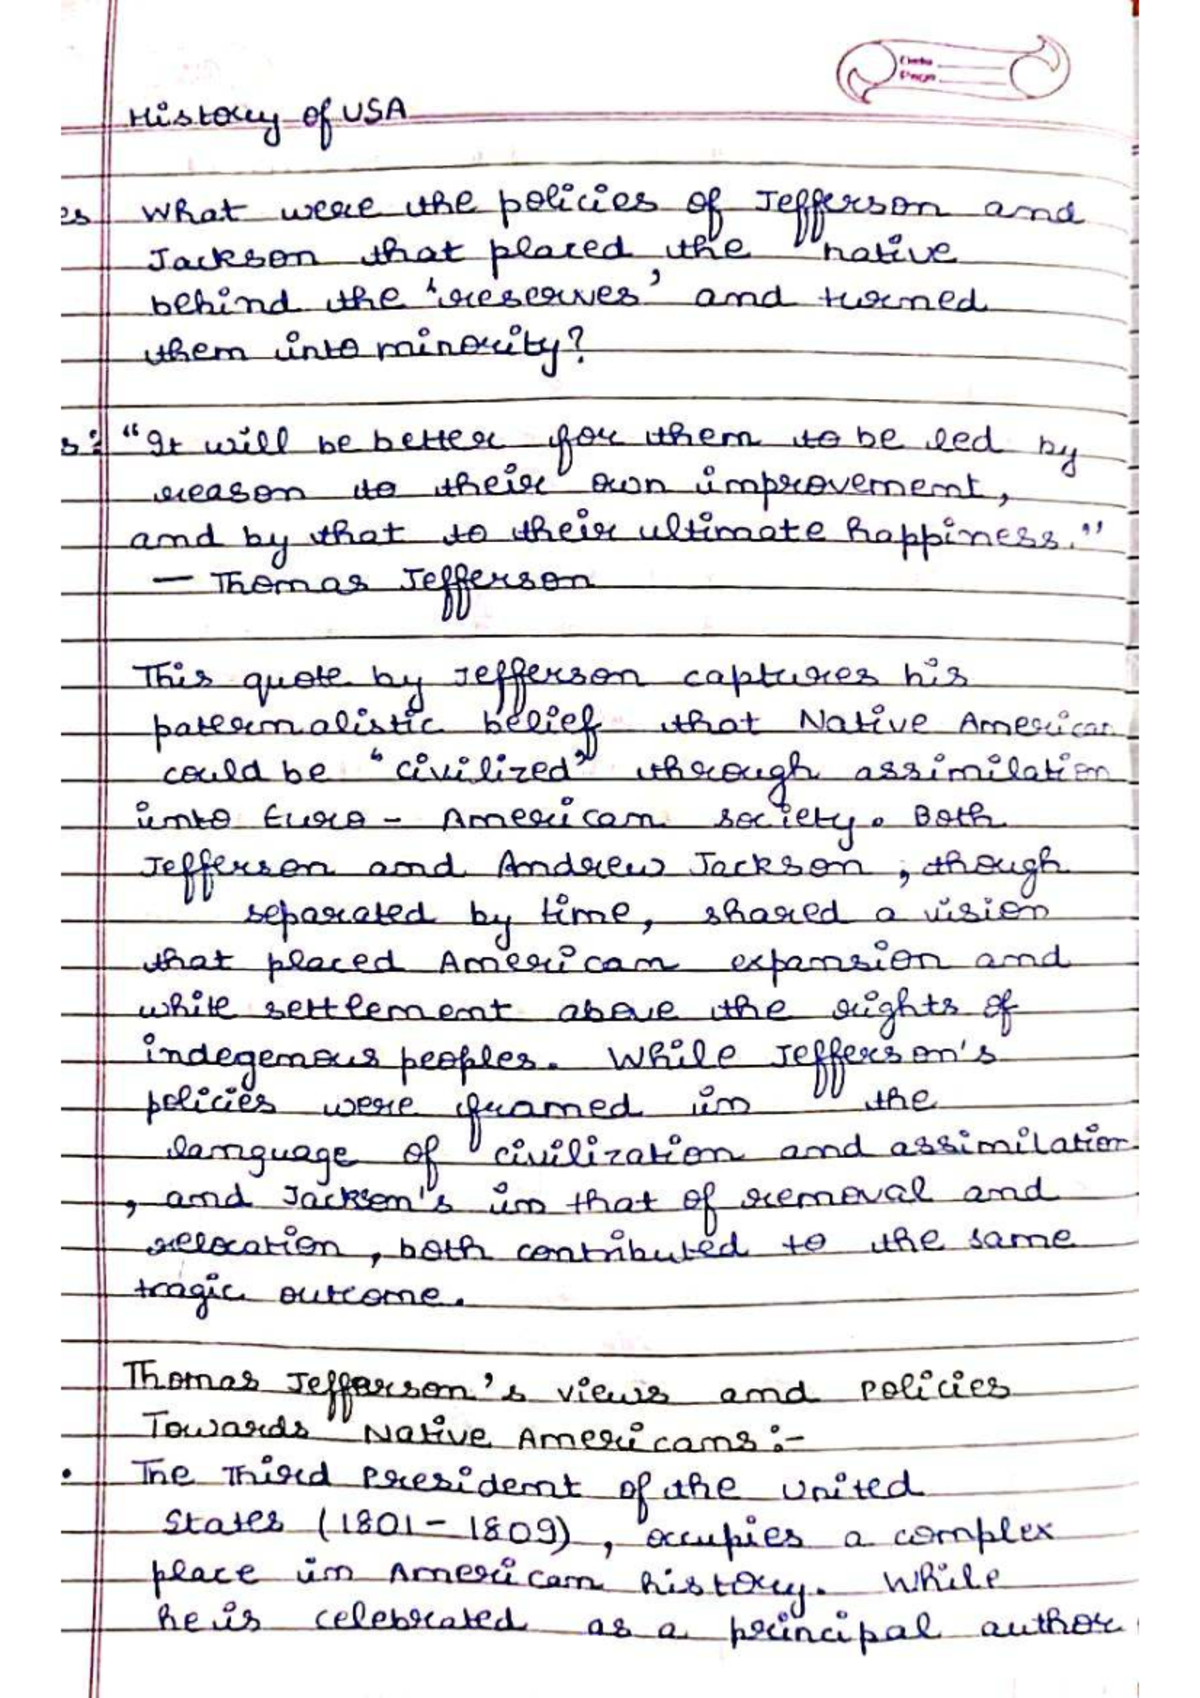 Date
Page
History of USA
es What were the policies of Jefferson and
Jackson that placed the native
behind the 'reserves' and turned
them into minority?
s: "It will be better for them to be led by
reason to their own improvement,
and by that to their ultimate happiness."
— Thomas Jefferson
This quote by Jefferson captures his
paternalistic belief that Native American
could be "civilized" through assimilation
into Euro - American society. Both
Jefferson and Andrew Jackson, though
separated by time, shared a vision
that placed American expansion and
white settlement above the rights of
indegenous peoples. While Jefferson's
policies were framed in the
language of civilization and assimilation
, and Jackson's in that of removal and
relocation, both contributed to the same
tragic outcome.
Thomas Jefferson's views and Policies
Towards Native Americans:-
• The Third President of the United
States (1801-1809), occupies a complex
place in American history. While
he is celebrated as a principal author